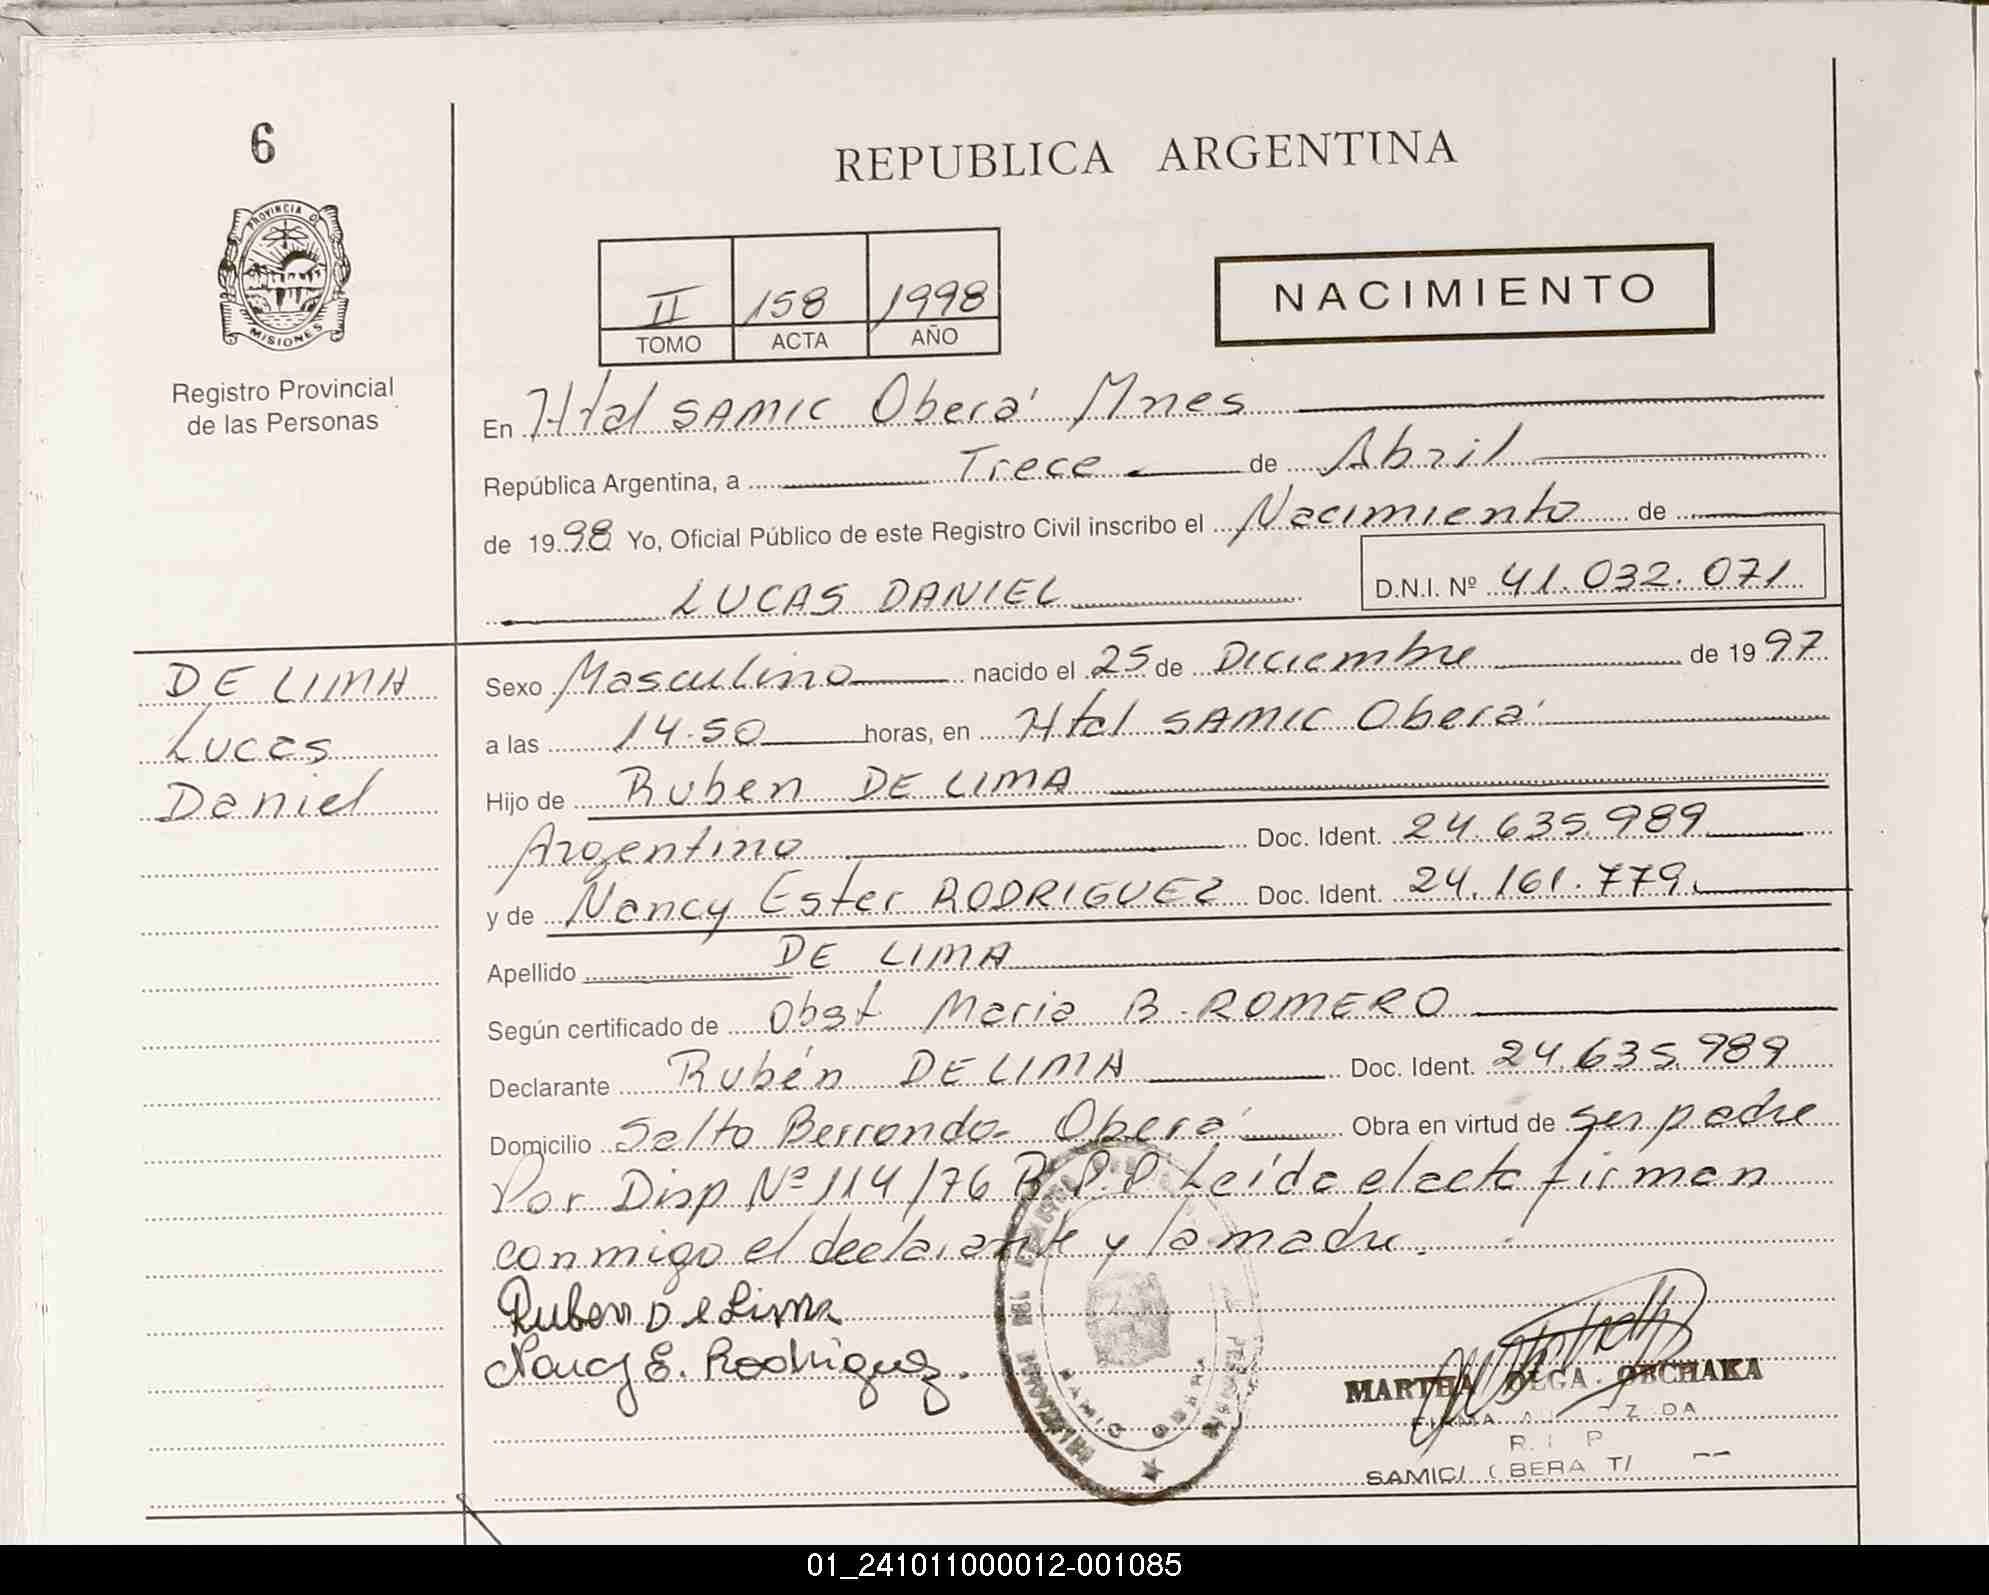 6
REPUBLICA ARGENTINA
PROVINCIA DE
MISIONES
Registro Provincial
de las Personas
II 158 1998
TOMO ACTA AÑO
NACIMIENTO
En Htal SAMIC Oberá Mnes
República Argentina, a Trece de Abril
de 1998 Yo, Oficial Público de este Registro Civil inscribo el Nacimiento de
LUCAS DANIEL D.N.I. Nº 41.032.071
DE LIMA
Lucas
Daniel
Sexo Masculino nacido el 25 de Diciembre de 1997
a las 14.50 horas, en Htal SAMIC Oberá
Hijo de Ruben DE LIMA
Argentino Doc. Ident. 24.635.989
y de Nancy Ester RODRIGUEZ Doc. Ident. 24.161.779
Apellido DE LIMA
Según certificado de Obst Maria B. ROMERO
Declarante Rubén DE LIMA Doc. Ident. 24.635.989
Domicilio Salto Berrondo - Oberá Obra en virtud de ser padre
Por Disp Nº 114/76 R.P.P Leída el acta firman
conmigo el declarante y la madre.
Ruben De Lima
Nancy E. Rodriguez.
SAMIC OBERA
MARTHA OLGA OBCHAKA
FIRMA
R. P
SAMIC/ OBERA
01_241011000012-001085